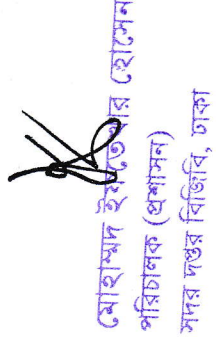 মোহাম্মদ ইফতেখার হোসেন
পরিচালক (প্রশাসন)
সদর দপ্তর বিজিবি, ঢাকা